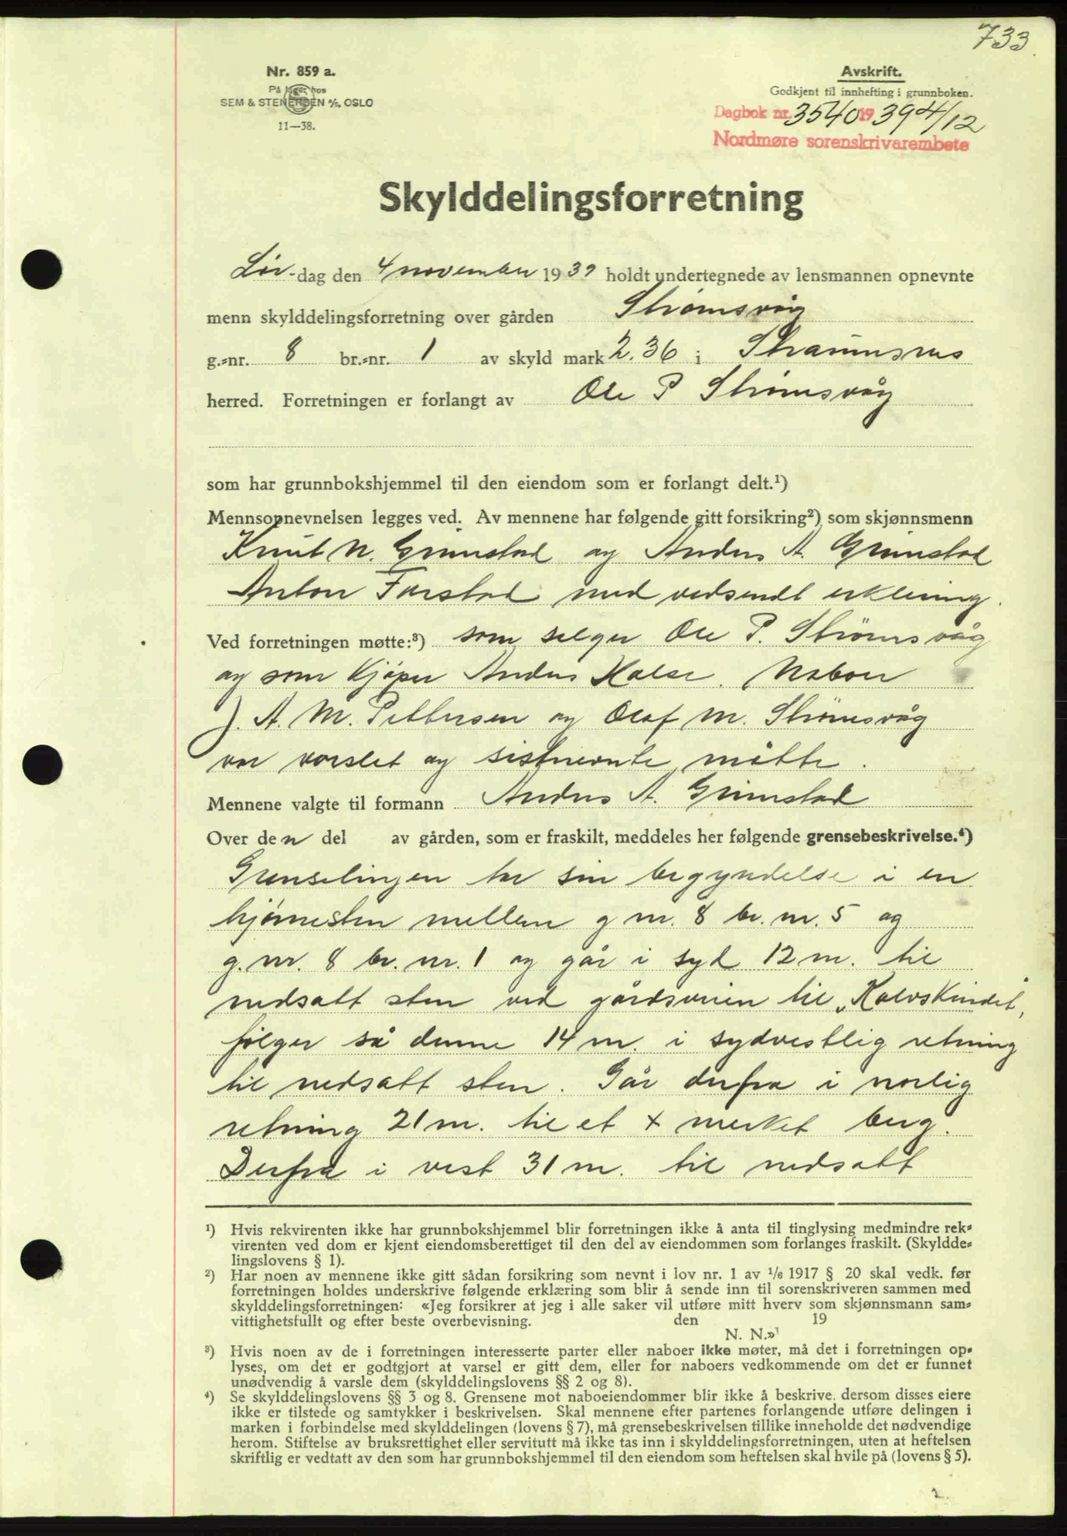 733.
Nr. 859 a.
På lager hos
SEM & STENERSEN A/S, OSLO
11—38.
Avskrift.
Godkjent til innhefting i grunnboken.
Dagbok nr. 3540 19 39 4/12
Nordmøre sorenskrivarembete
Skylddelingsforretning
Lør-dag den 4 november 1939 holdt undertegnede av lensmannen opnevnte
menn skylddelingsforretning over gården Strømsvåg
g.-nr. 8 br.-nr. 1 av skyld mark 2.36 i Straumsnes
herred. Forretningen er forlangt av Ole P Strømsvåg
som har grunnbokshjemmel til den eiendom som er forlangt delt.¹)
Mennsopnevnelsen legges ved. Av mennene har følgende gitt forsikring²) som skjønnsmenn
Knut N. Grimstad og Anders A. Grimstad
Anton Farstad med vedsendt erklering.
Ved forretningen møtte:³) som selger Ole P. Strømsvåg
og som kjøper Anders Halse. Naboer
J. A. M. Pettersen og Olaf M. Strømsvåg
var varslet og sistnevnte møtte.
Mennene valgte til formann Anders A. Grimstad
Over den del av gården, som er fraskilt, meddeles her følgende grensebeskrivelse.⁴)
Grenselinjen tar sin begyndelse i en
hjørnesten mellem g.nr. 8 br.nr. 5 og
g.nr. 8 br.nr. 1 og går i syd 12 m. til
nedsatt sten ved gårdsveien til „Kalvskindet",
følger så denne 14 m. i sydvestlig retning
til nedsatt sten. Går derfra i norlig
retning 21 m. til et + merket berg.
Derfra i vest 31 m. til nedsatt
¹) Hvis rekvirenten ikke har grunnbokshjemmel blir forretningen ikke å anta til tinglysing medmindre rek-
virenten ved dom er kjent eiendomsberettiget til den del av eiendommen som forlanges fraskilt. (Skyldde-
lingslovens § 1).
²) Har noen av mennene ikke gitt sådan forsikring som nevnt i lov nr. 1 av 1/6 1917 § 20 skal vedk. før
forretningen holdes underskrive følgende erklæring som blir å sende inn til sorenskriveren sammen med
skylddelingsforretningen: «Jeg forsikrer at jeg i alle saker vil utføre mitt hverv som skjønnsmann sam-
vittighetsfullt og efter beste overbevisning. den 19
N. N.»
³) Hvis noen av de i forretningen interesserte parter eller naboer ikke møter, må det i forretningen op-
lyses, om det er godtgjort at varsel er gitt dem, eller for naboers vedkommende om det er funnet
unødvendig å varsle dem (skylddelingslovens §§ 2 og 8).
⁴) Se skylddelingslovens §§ 3 og 8. Grensene mot naboeiendommer blir ikke å beskrive, dersom disses eiere
ikke er tilstede og samtykker i beskrivelsen. Skal mennene efter partenes forlangende utføre delingen i
marken i forbindelse med skylddelingen (lovens § 7), må grensebeskrivelsen tillike inneholde det nødvendige
herom. Stiftelse av bruksrettighet eller servitutt må ikke tas inn i skylddelingsforretningen, uten at heftelsen
skriftlig er vedtatt av den som har grunnbokshjemmel til den eiendom som heftelsen skal hvile på (lovens § 5).